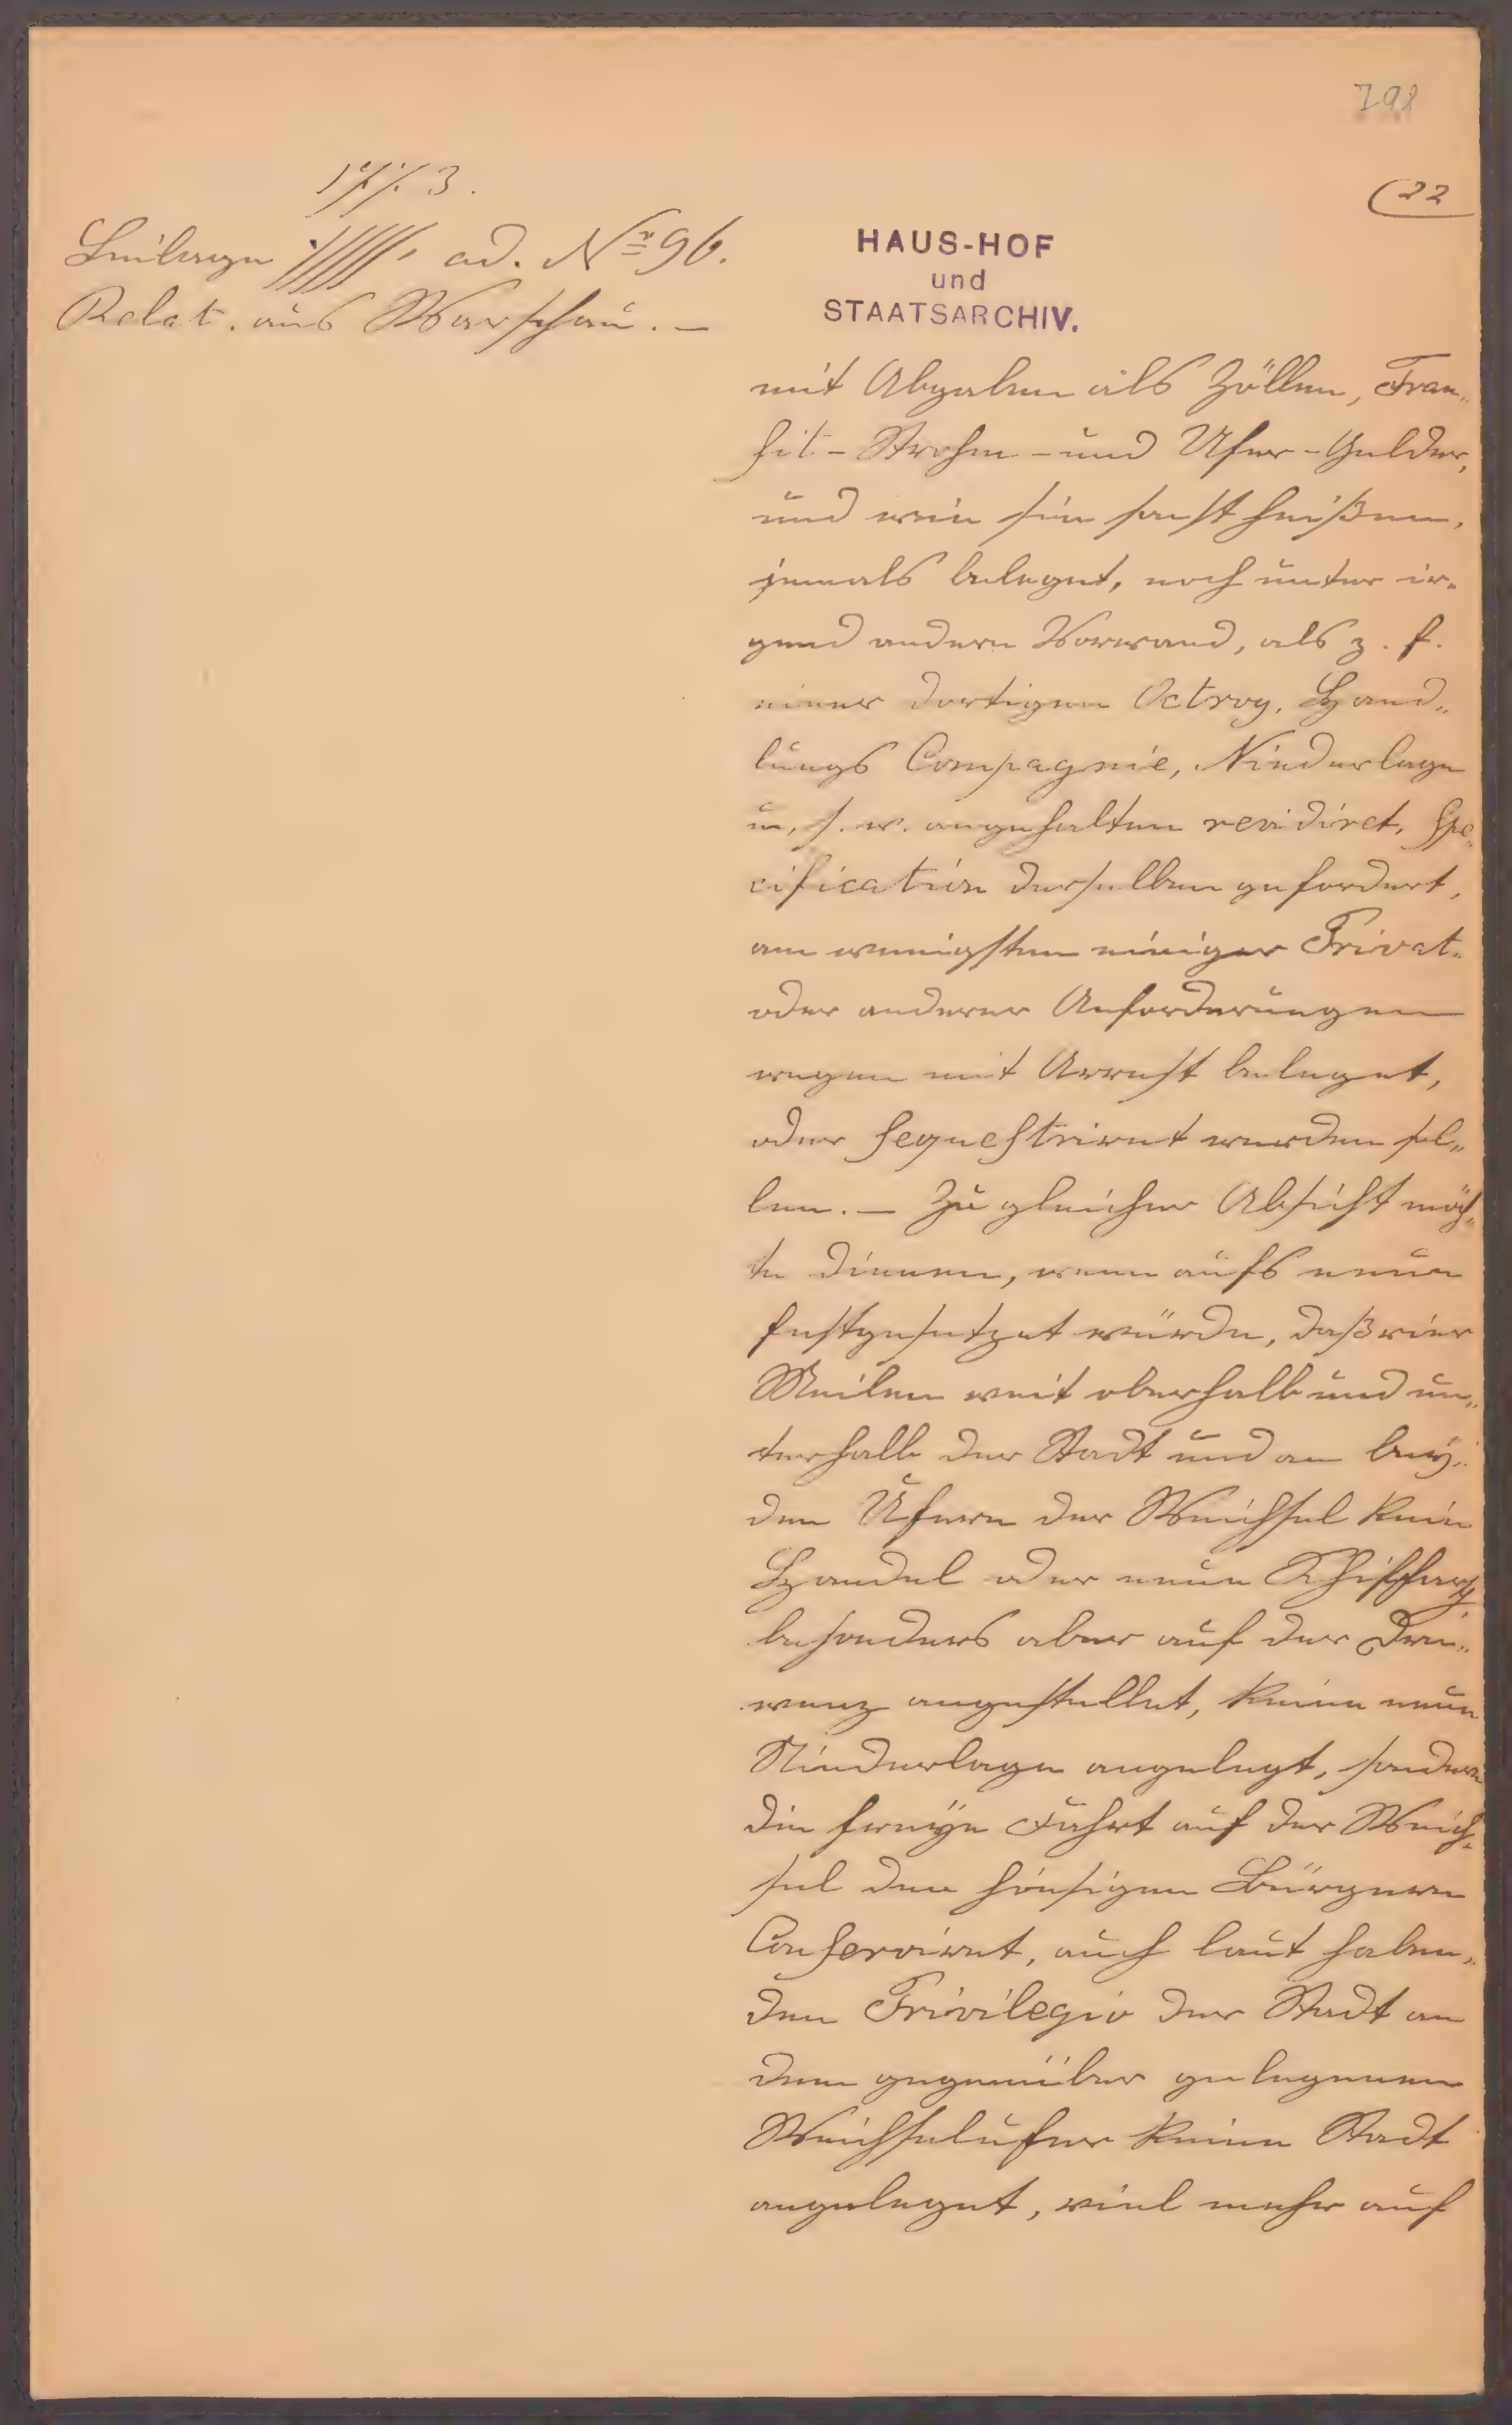 798
(22
1773.
Beilage ad. Nr 96.
Relat. aus Warschau. —
HAUS-HOF
und
STAATSARCHIV.
mit Abgaben als Zöllen, Tran„
sit- Strohm- und Ufer-Gelder,
und wie sie sonst heißen,
jemals beleget, noch unter ir„
gend andern Vorwand, als z. f.
einer dortigen Octroy, Hand„
lungs Compagnie, Niederlage
u. s. w. angehalten revidiret, Spe„
cification derselben gefordert,
am wenigsten einiger Privat„
oder anderer Anforderungen
wegen mit Arrest beleget,
oder sequestriret werden sol„
len. — Zu gleicher Absicht möch„
te dienen, wenn aufs neue
festgesetzet würde, daß vier
Meilen weit oberhalb und un„
terhalb der Stadt und an bey„
den Ufern der Weichsel kein
Handel oder neue Schiffart,
besonders aber auf der Dre„
wenz angestellet, keine neue
Niederlage angelegt, sondern
die freÿe Fahrt auf der Weich„
sel den hiesigen Bürgern
Conserviret, auch laut haben„
den Privilegio der Stadt an
dem gegenüber gelegenen
Weichselufer keine Stadt
angeleget, viel mehr auf